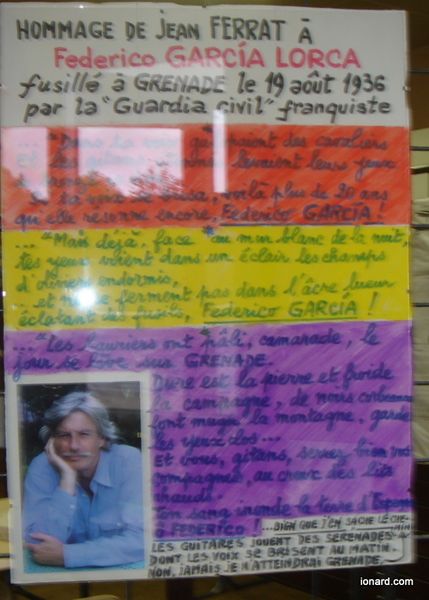 HOMMAGE DE JEAN FERRAT À
Federico GARCÍA LORCA
fusillé à GRENADE le 19 août 1936
par la "Guardia civil" franquiste
... "Dans ta voix cavaliers
Et les gitans levaient leurs yeux
Si ta voix se brisa, voilà plus de 20 ans
qu'elle résonne encore, Federico GARCÍA !
... "Mais déjà, face au mur blanc de la nuit,
tes yeux voient dans un éclair les champs
d'oliviers endormis,
et ne se ferment pas dans l'âcre lueur
éclatant des fusils, Federico GARCÍA !
... "Les lauriers ont pâli, camarade, le
jour se lève sur GRENADE.
Dure est la pierre et froide
la campagne, de noirs
font mugir la montagne, garde
les yeux clos...
Et vous, gitans, serrez bien vos
compagnes, au creux des lits
chauds.
Ton sang inonde la terre d'Espagne
Ô FEDERICO ! ...BIEN QUE J'EN SACHE LE CHE-
MIN
LES GUITARES JOUENT DES SÉRÉNADES
DONT LES VOIX SE BRISENT AU MATIN.
NON, JAMAIS JE N'ATTEINDRAI GRENADE,
ionard.com